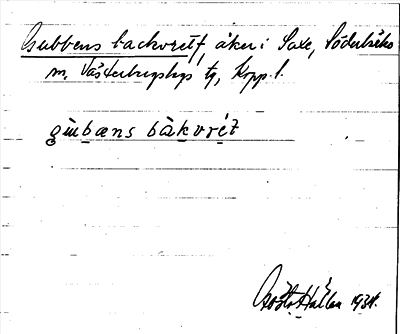 Gubbens backvret, åker i Saxe, Söderbärke
sn, Västerbergslags tg, Kopp. l.
gu̇bæns bàkvré̱t
Gösta Hallen 1934.